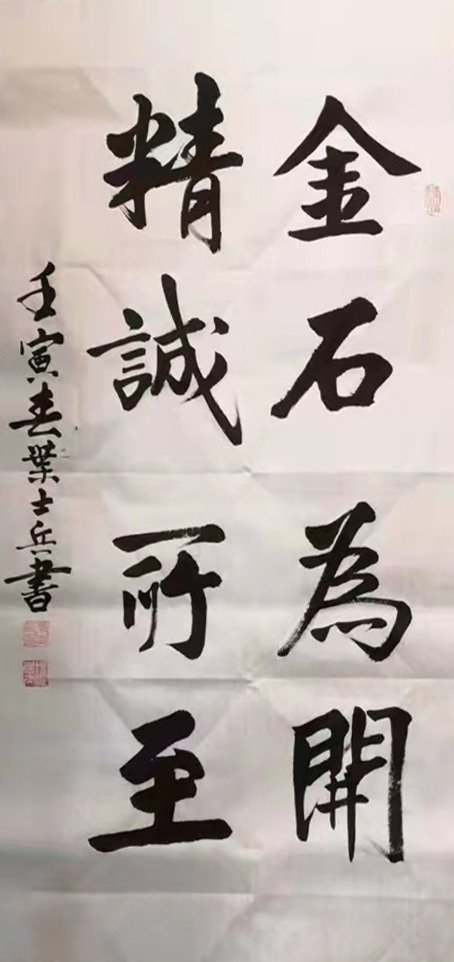 金石為開
精誠所至
壬寅春葉士兵書